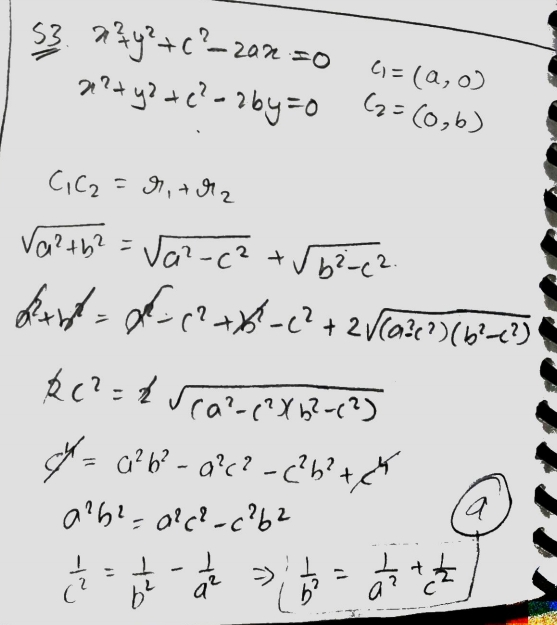 53. x²+y²+c²-2ax=0
x²+y²+c²-2by=0
C₁=(a,0)
C₂=(0,b)
C₁C₂ = r₁+r₂
√(a²+b²) = √(a²-c²) + √(b²-c²).
a²+b² = a²-c²+b²-c²+2√((a²c²)(b²-c²))
2c² = 2√((a²-c²)(b²-c²))
c⁴ = a²b²-a²c²-c²b²+c⁴
a²b² = a²c²-c²b²
a
1/c² = 1/b² - 1/a² ⇒ 1/b² = 1/a² + 1/c²